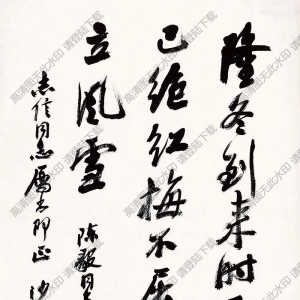 隆冬到来时
已绝红梅不屈
立風雪
陈毅同
志信同志属书即正 沙